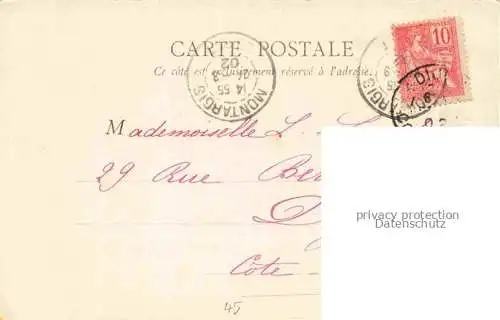 CARTE POSTALE
Ce côté est exclusivement réservé à l'adresse.
10
MONTARGIS
14 55
3
02
Mademoiselle L. L
29 Rue Ber
D
Côte
privacy protection
Datenschutz
45